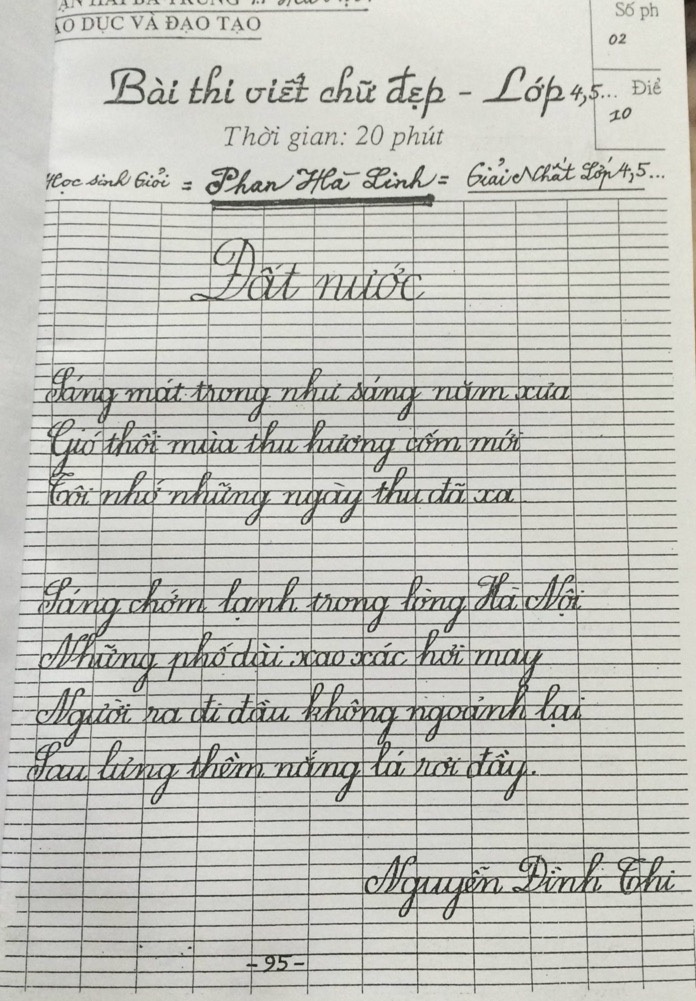 ÁO DỤC VÀ ĐẠO TẠO
Số ph
02
Bài thi viết chữ đẹp - Lớp 4,5...
Điể
10
Thời gian: 20 phút
Học sinh Giỏi = Phan Hà Linh = Giải Nhất Lớp 4,5...
Đất nước
Sáng mát trong như sáng năm xưa
Gió thổi mùa thu hương cốm mới
Tôi nhớ những ngày thu đã xa
Sáng chớm lạnh trong lòng Hà Nội
Những phố dài xao xác hơi may
Người ra đi đầu không ngoảnh lại
Sau lưng thềm nắng lá rơi đầy.
Nguyễn Đình Thi
- 95 -